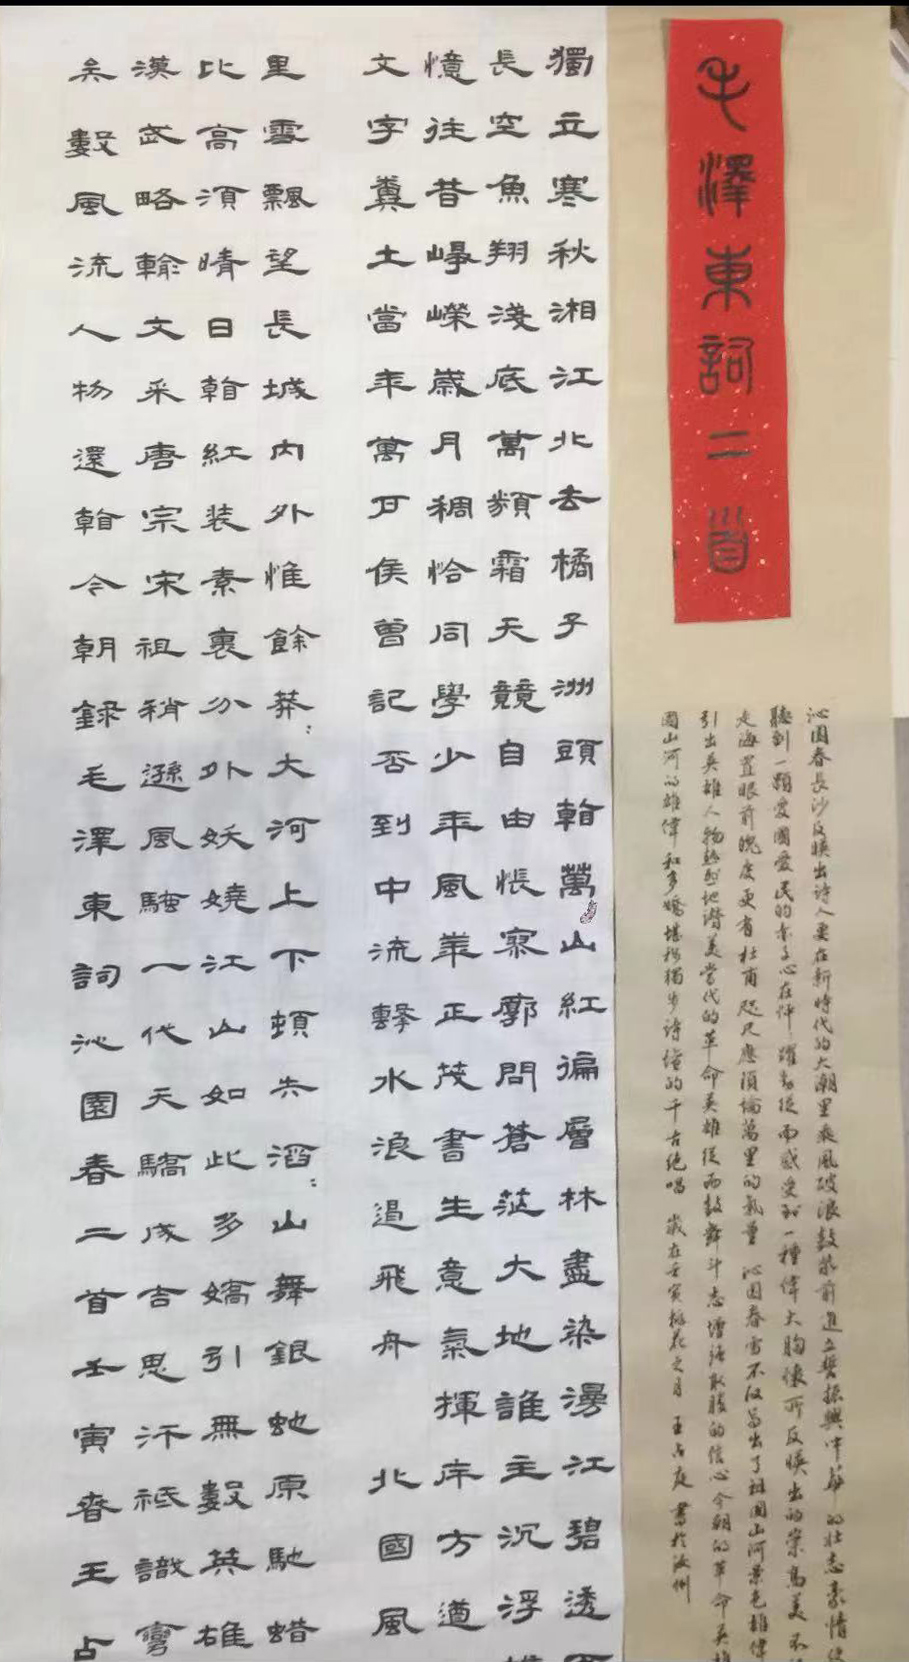 毛澤東詞二首
沁園春長沙反映出诗人要在新時代的大潮里乘風破浪鼓帆前進立誓振興中華的壮志豪情使
聽到一顆愛國愛民的赤子心在怦躍動從而感受到一種偉大胸懷所反映出的崇高美不
走海置眼前魄度更有杜甫咫尺應須論萬里的氣量 沁园春雪不仅写出了祖国山河景色雄偉
引出英雄人物熱烈地讚美當代的革命英雄從而鼓舞斗志增强取勝的信心今朝的革命英雄
國山河的雄偉和多嬌堪称獨步诗壇的千古绝唱 歲在壬寅桃花之月 王占庭書於汝州
獨立寒秋湘江北去橘子洲頭看萬山紅徧層林盡染漫江碧透
長空魚翔淺底萬類霜天競自由悵寥廓問蒼茫大地誰主沉浮
憶往昔崢嶸歲月稠恰同學少年風華正茂書生意氣揮斥方遒
文字糞土當年萬户侯曾記否到中流擊水浪遏飛舟 北國風
里雪飄望長城內外惟餘莽：大河上下頓失滔：山舞銀蛇原馳蜡
比高須晴日看紅装素裹分外妖嬈江山如此多嬌引無數英雄
漢武略輸文采唐宗宋祖稍遜風騷一代天驕成吉思汗祗識彎
矣數風流人物還看今朝錄毛澤東詞沁園春二首壬寅春王占